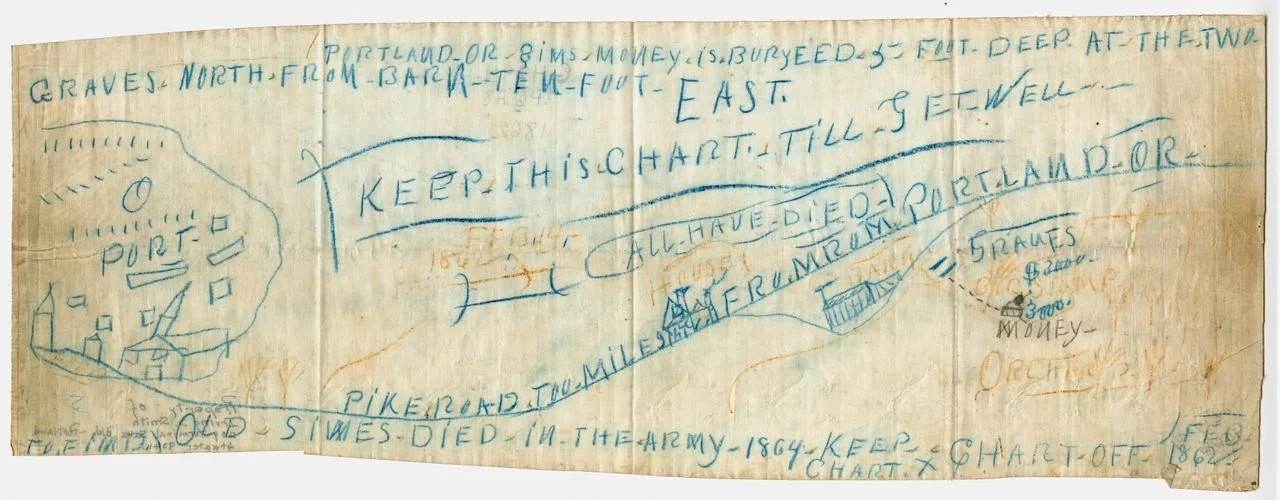 PORTLAND-OR-SIMS-MONEY-IS-BURYEED-5-FOOT-DEEP-AT-THE-TWO-
GRAVES-NORTH-FROM-BARN-TEN-FOOT-
EAST.
KEEP-THIS-CHART.-TILL-GET-WELL---
ALL-HAVE-DIED-
FROM, PORTLAND-OR-
FEB.14-
1862
HOUSE
BARN
GRAVES
$2000.
3000.
MONEY-
ORCHARD
PORT-
PIKE.ROAD.TOO-MILES-FROM
Property of
SIMES-DIED-IN-THE-ARMY-1864-KEEP-
CHART-X CHART-OFF-
FEB
1862